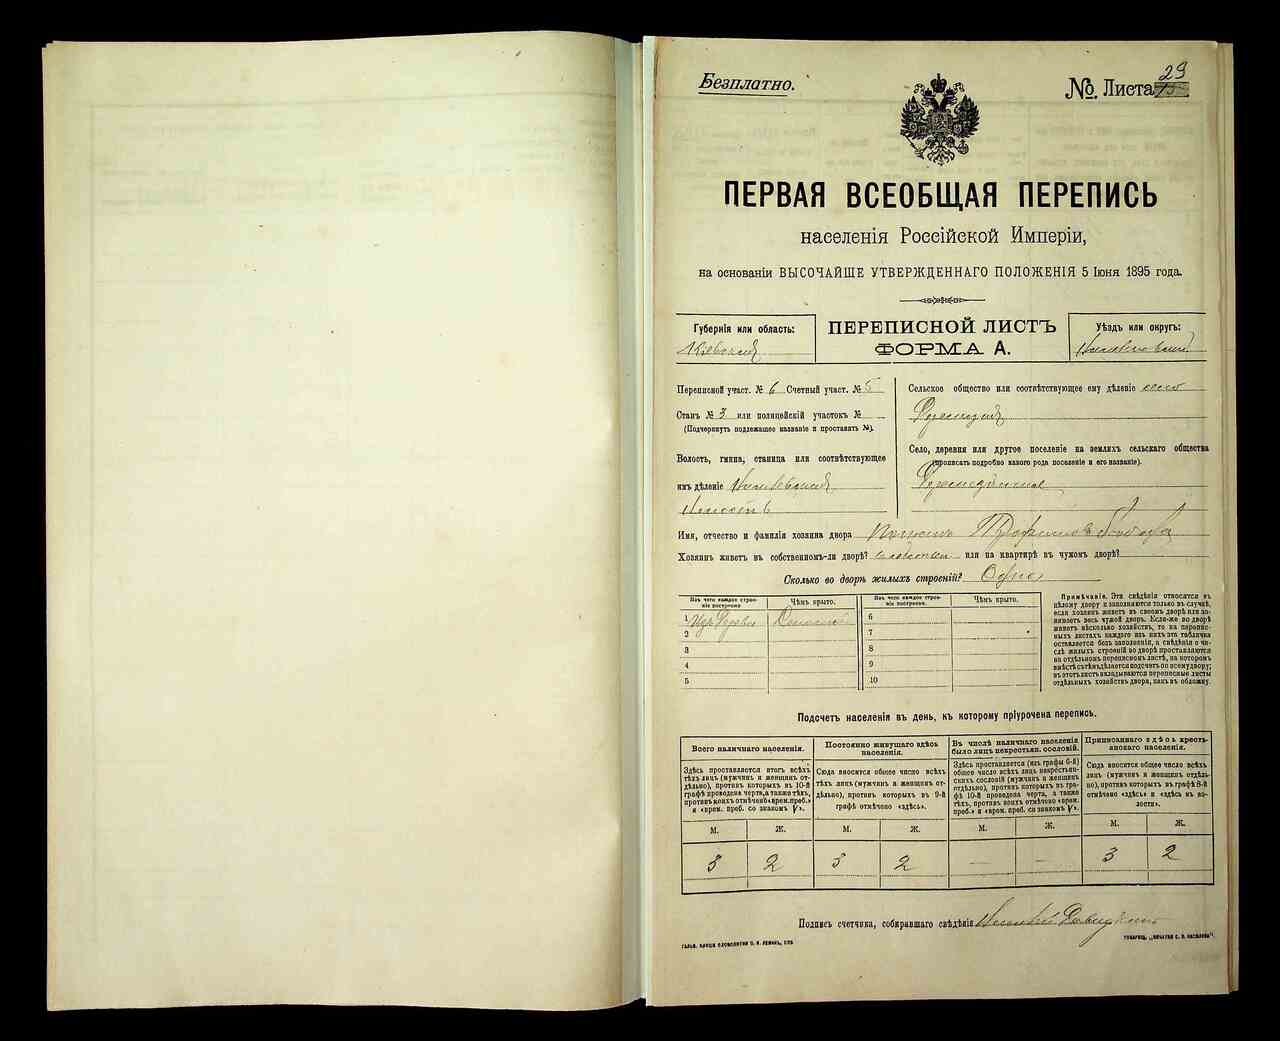 Безплатно.
№ Листа 29
ПЕРВАЯ ВСЕОБЩАЯ ПЕРЕПИСЬ
населенія Россійской Имперіи,
на основаніи ВЫСОЧАЙШЕ УТВЕРЖДЕННАГО ПОЛОЖЕНІЯ 5 Іюня 1895 года.
Губернія или область:
Кіевская
ПЕРЕПИСНОЙ ЛИСТЪ
ФОРМА А.
Уѣздъ или округъ:
Переписной участ. № 6 Счетный участ. № 5
Станъ № 3 или полицейскій участокъ №
(Подчеркнуть подлежащее названіе и проставить №).
Волость, гмина, станица или соотвѣтствующее
имъ дѣленіе
волость
Сельское общество или соотвѣтствующее ему дѣленіе село
Село, деревня или другое поселеніе на земляхъ сельскаго общества
(прописать подробно какого рода поселеніе и его названіе).
Имя, отчество и фамилія хозяина двора
Хозяинъ живетъ въ собственномъ-ли дворѣ? или на квартирѣ въ чужомъ дворѣ?
Сколько во дворѣ жилыхъ строеній? Одно
Изъ чего каждое строеніе построено
Чѣмъ крыто.
Изъ чего каждое строеніе построено.
Чѣмъ крыто.
1 Изъ дерева Соломой
2
3
4
5
6
7
8
9
10
Примѣчаніе. Эта свѣдѣнія относятся къ
цѣлому двору и заполняются только въ случаѣ,
если хозяинъ живетъ въ своемъ дворѣ или за-
нимаетъ весь чужой дворъ. Если-же во дворѣ
живетъ нѣсколько хозяйствъ, то на перепис-
ныхъ листахъ каждаго изъ нихъ эта табличка
оставляется безъ заполненія, а свѣдѣнія о чи-
слѣ жилыхъ строеній во дворѣ проставляются
на отдѣльномъ переписномъ листѣ, на которомъ
вмѣстѣ съ тѣмъ дѣлается подсчетъ по всему двору;
въ этотъ листъ вкладываются переписные листы
отдѣльныхъ хозяйствъ двора, какъ въ обложку.
Подсчетъ населенія въ день, къ которому пріурочена перепись.
Всего наличнаго населенія.
Здѣсь проставляется итогъ всѣхъ
тѣхъ лицъ (мужчинъ и женщинъ от-
дѣльно), противъ которыхъ въ 10-й
графѣ проведена черта, а также тѣхъ,
противъ коихъ отмѣчено «врем. преб.»
и «врем. преб. со знакомъ V».
Постоянно живущаго здѣсь
населенія.
Сюда вносится общее число всѣхъ
тѣхъ лицъ (мужчинъ и женщинъ от-
дѣльно), противъ которыхъ въ 9-й
графѣ отмѣчено «здѣсь».
Въ числѣ наличнаго населенія
было лицъ некрестьян. сословій.
Здѣсь проставляется (изъ графы 6-й)
общее число всѣхъ лицъ некрестьян-
скихъ сословій (мужчинъ и женщинъ
отдѣльно), противъ которыхъ въ гра-
фѣ 10-й проведена черта, а также
тѣхъ, противъ коихъ отмѣчено «врем.
преб.» и «врем. преб. со знакомъ V».
Приписаннаго здѣсь кресть-
янскаго населенія.
Сюда вносится общее число всѣхъ
лицъ (мужчинъ и женщинъ отдѣль-
но), противъ которыхъ въ графѣ 8-й
отмѣчено «здѣсь» и «здѣсь въ во-
лости».
М. Ж. М. Ж. М. Ж. М. Ж.
3 2 3 2 — — 3 2
Подпись счетчика, собиравшаго свѣдѣнія